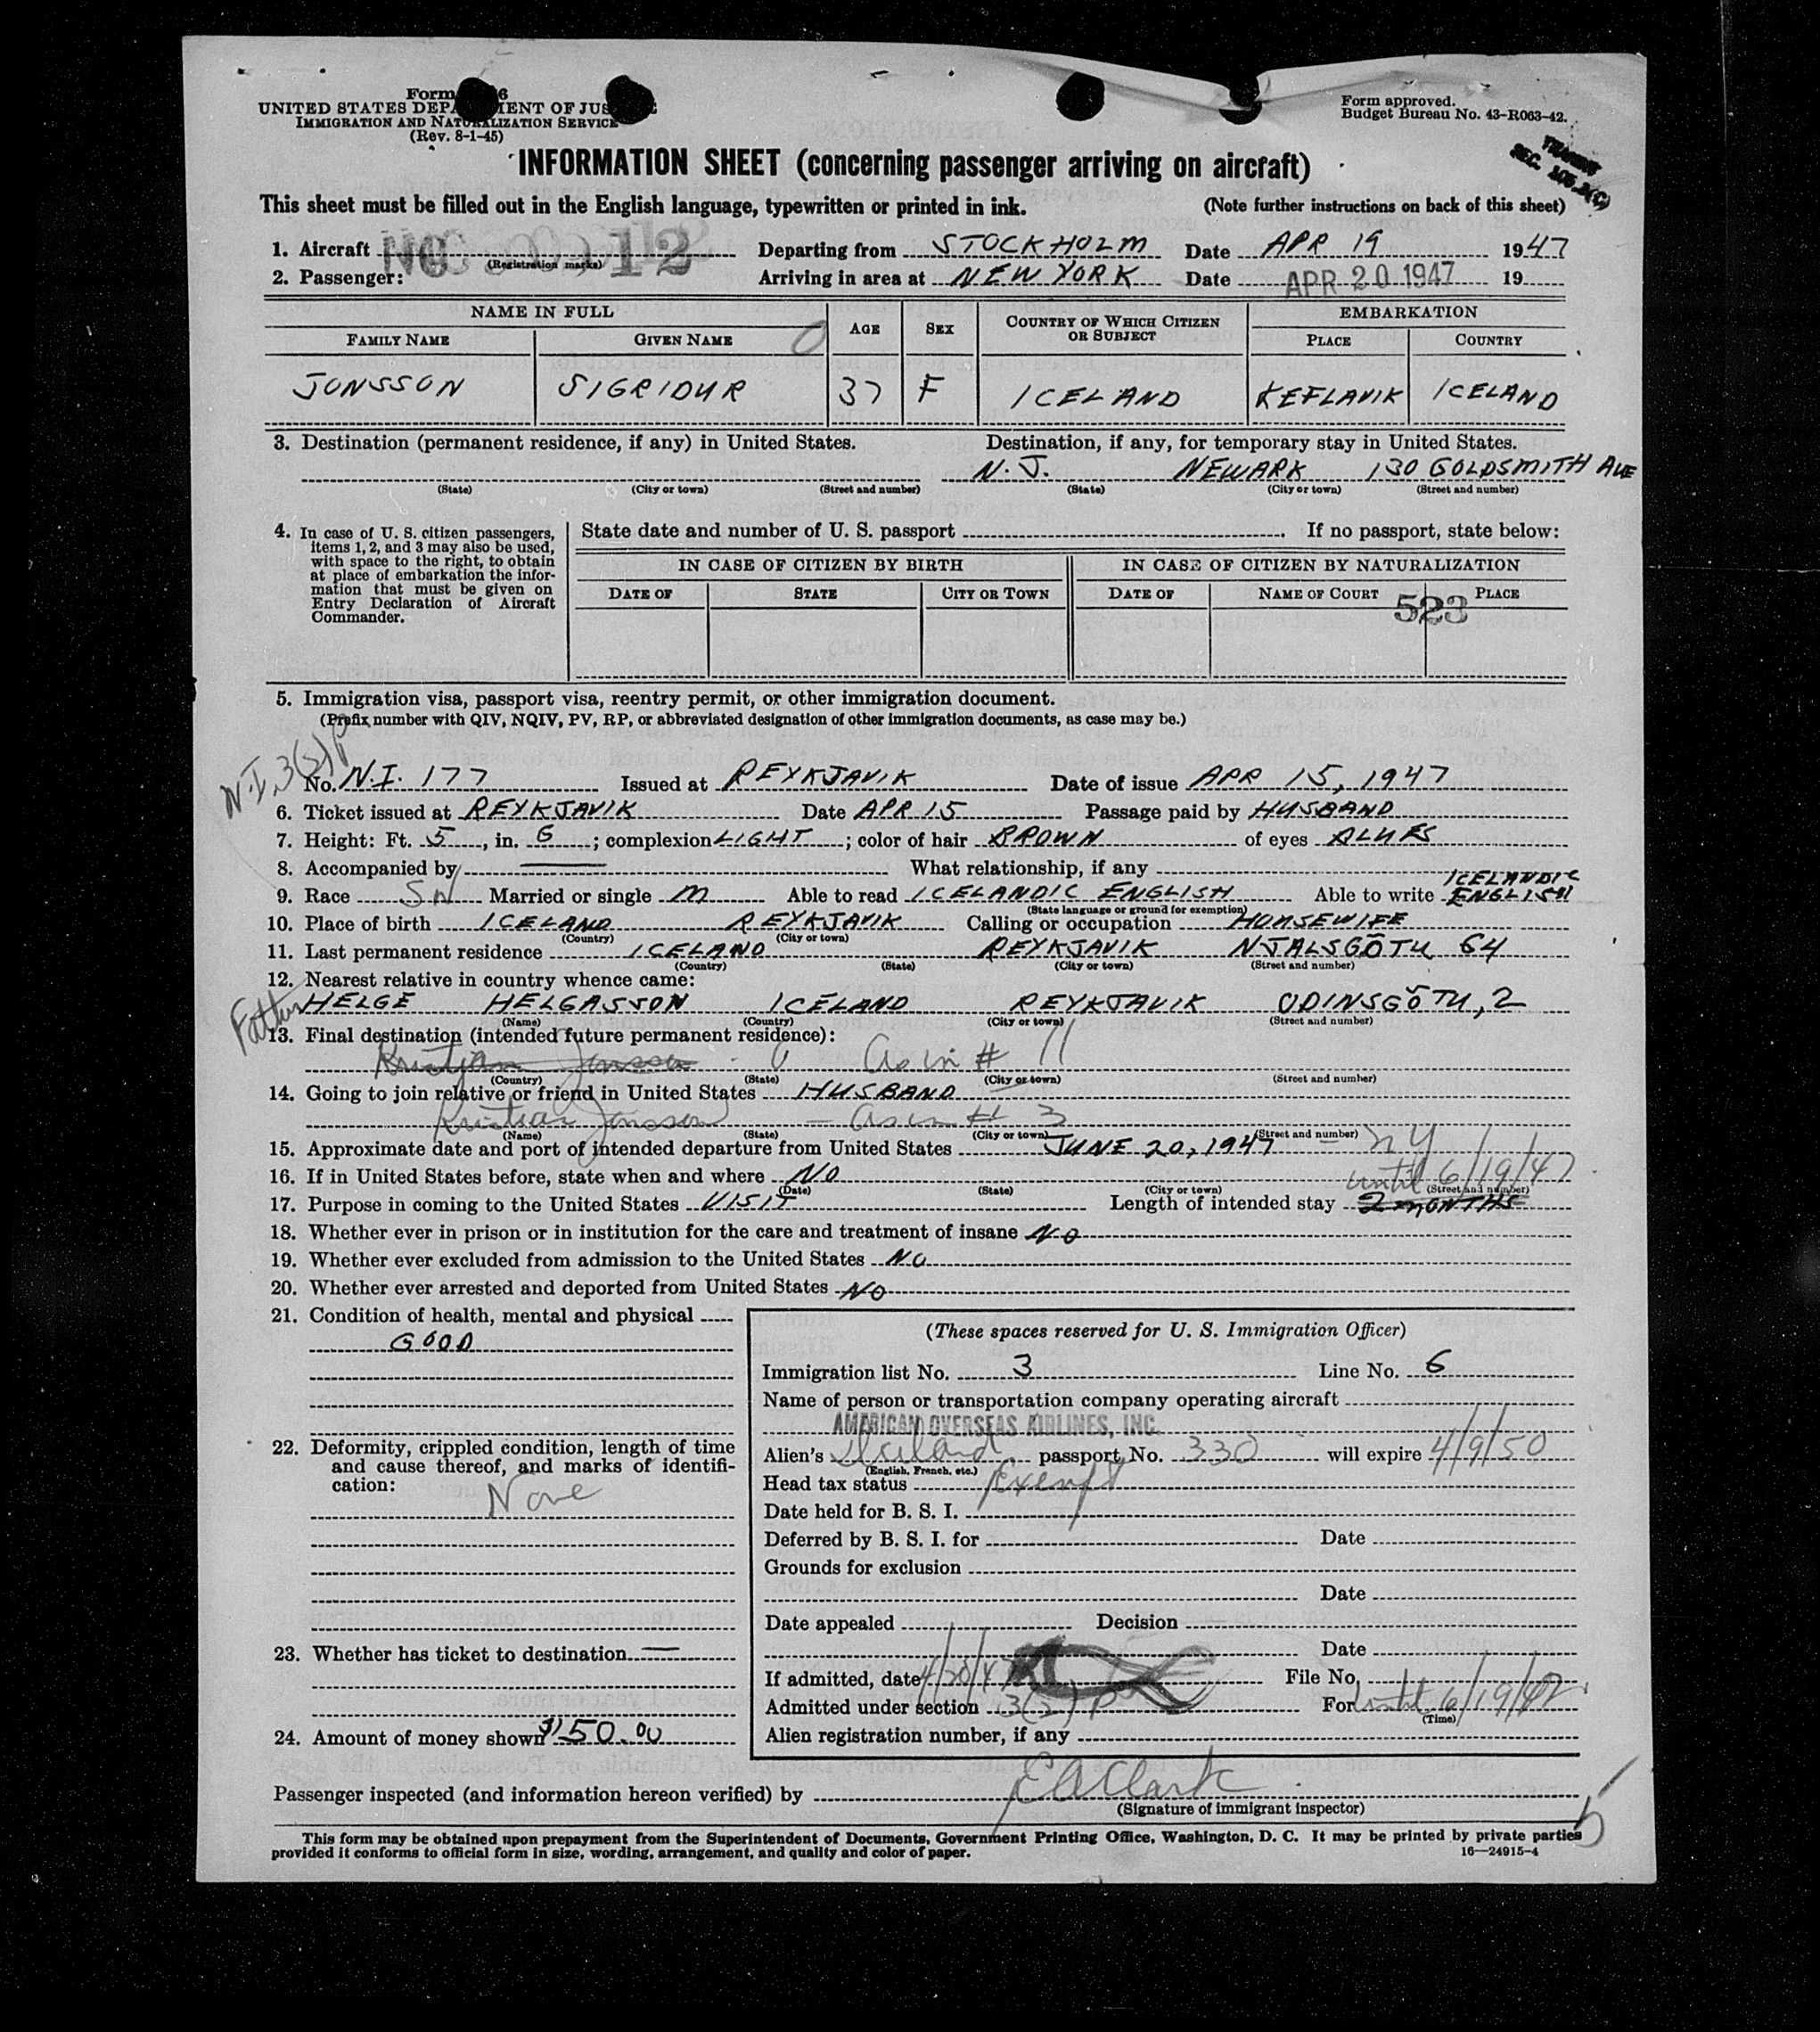 Form 6
UNITED STATES DEPARTMENT OF JUSTICE
IMMIGRATION AND NATURALIZATION SERVICE
(Rev. 8-1-45)
Form approved.
Budget Bureau No. 43-R063-42.
INFORMATION SHEET (concerning passenger arriving on aircraft)
This sheet must be filled out in the English language, typewritten or printed in ink. (Note further instructions on back of this sheet)
1. Aircraft NC 12 (Registration marks) Departing from STOCKHOLM Date APR 19 1947
2. Passenger: Arriving in area at NEW YORK Date APR 20 1947 19
NAME IN FULL AGE SEX COUNTRY OF WHICH CITIZEN OR SUBJECT EMBARKATION
FAMILY NAME GIVEN NAME PLACE COUNTRY
JONSSON SIGRIDUR 37 F ICELAND KEFLAVIK ICELAND
3. Destination (permanent residence, if any) in United States. Destination, if any, for temporary stay in United States.
N.J. NEWARK 130 GOLDSMITH AVE
(State) (City or town) (Street and number) (State) (City or town) (Street and number)
4. In case of U. S. citizen passengers, items 1, 2, and 3 may also be used, with space to the right, to obtain at place of embarkation the information that must be given on Entry Declaration of Aircraft Commander.
State date and number of U. S. passport If no passport, state below:
IN CASE OF CITIZEN BY BIRTH IN CASE OF CITIZEN BY NATURALIZATION
DATE OF STATE CITY OR TOWN DATE OF NAME OF COURT PLACE
523
5. Immigration visa, passport visa, reentry permit, or other immigration document.
(Prefix number with QIV, NQIV, PV, RP, or abbreviated designation of other immigration documents, as case may be.)
N.I. 3(2)P
No. N.I. 177 Issued at REYKJAVIK Date of issue APR 15, 1947
6. Ticket issued at REYKJAVIK Date APR 15 Passage paid by HUSBAND
7. Height: Ft. 5, in. 6; complexion LIGHT; color of hair BROWN of eyes
8. Accompanied by — What relationship, if any
9. Race SN Married or single M Able to read ICELANDIC ENGLISH Able to write ICELANDIC ENGLISH
(State language or ground for exemption)
10. Place of birth ICELAND REYKJAVIK Calling or occupation HOUSEWIFE
(Country) (City or town)
11. Last permanent residence ICELAND REYKJAVIK NJALSGÖTU 64
(Country) (State) (City or town) (Street and number)
12. Nearest relative in country whence came:
Father HELGE HELGASSON ICELAND REYKJAVIK ODINSGÖTU, 2
(Name) (Country) (City or town) (Street and number)
13. Final destination (intended future permanent residence):
Kristjan Jonsson As in # 11
(Country) (State) (City or town) (Street and number)
14. Going to join relative or friend in United States HUSBAND
Kristian Jonsson - As in # 3
(Name) (State) (City or town) (Street and number)
15. Approximate date and port of intended departure from United States JUNE 20, 1947 - NY
16. If in United States before, state when and where NO until 6/19/47
(Date) (State) (City or town) (Street and number)
17. Purpose in coming to the United States VISIT Length of intended stay 2 MONTHS
18. Whether ever in prison or in institution for the care and treatment of insane NO
19. Whether ever excluded from admission to the United States NO
20. Whether ever arrested and deported from United States NO
21. Condition of health, mental and physical
GOOD
22. Deformity, crippled condition, length of time and cause thereof, and marks of identification:
None
23. Whether has ticket to destination —
24. Amount of money shown $150.00
(These spaces reserved for U. S. Immigration Officer)
Immigration list No. 3 Line No. 6
Name of person or transportation company operating aircraft
AMERICAN OVERSEAS AIRLINES, INC.
Alien's Iceland passport No. 330 will expire 4/9/50
(English, French, etc.)
Head tax status Exempt
Date held for B. S. I.
Deferred by B. S. I. for Date
Grounds for exclusion
Date
Date appealed Decision
Date
If admitted, date 4/20/47 File No.
Admitted under section 3(2) P For until 6/19/47
(Time)
Alien registration number, if any
Passenger inspected (and information hereon verified) by E A Clark
(Signature of immigrant inspector)
This form may be obtained upon prepayment from the Superintendent of Documents, Government Printing Office, Washington, D. C. It may be printed by private parties
provided it conforms to official form in size, wording, arrangement, and quality and color of paper. 16—24915-4